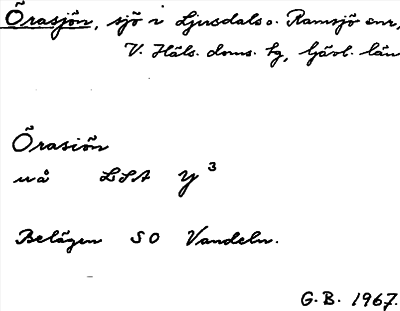 Örasjön, sjö i Ljusdals o. Ramsjö snr,
V. Häls. doms. tg, Gävl. län
Örasiön
nå LSA Y³
Belägen SO Vandeln.
G.B. 1967.